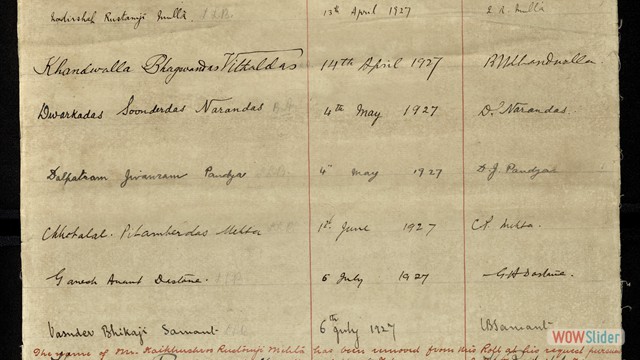 Rustamji Mulla 13th April 1927
Khandwalla Bhagwandas Vithaldas 14th April 1927 BVKhandwalla
Dwarkadas Soonderdas Narandas 4th May 1927 D. Narandas.
Dalpatram Jivanram Pandya 4th May 1927 D J Pandya
Chhotalal Pitamberdas Mehta 1st June 1927 C P Mehta.
Ganesh Anant Dastane. 6 July 1927 G A Dastane.
Vasudev Bhikaji Samant 6th July 1927 VBSamant
The name of Mr. Kaikhushroo Rustomji Mehta has been removed from this Roll at his request
WOWSlider